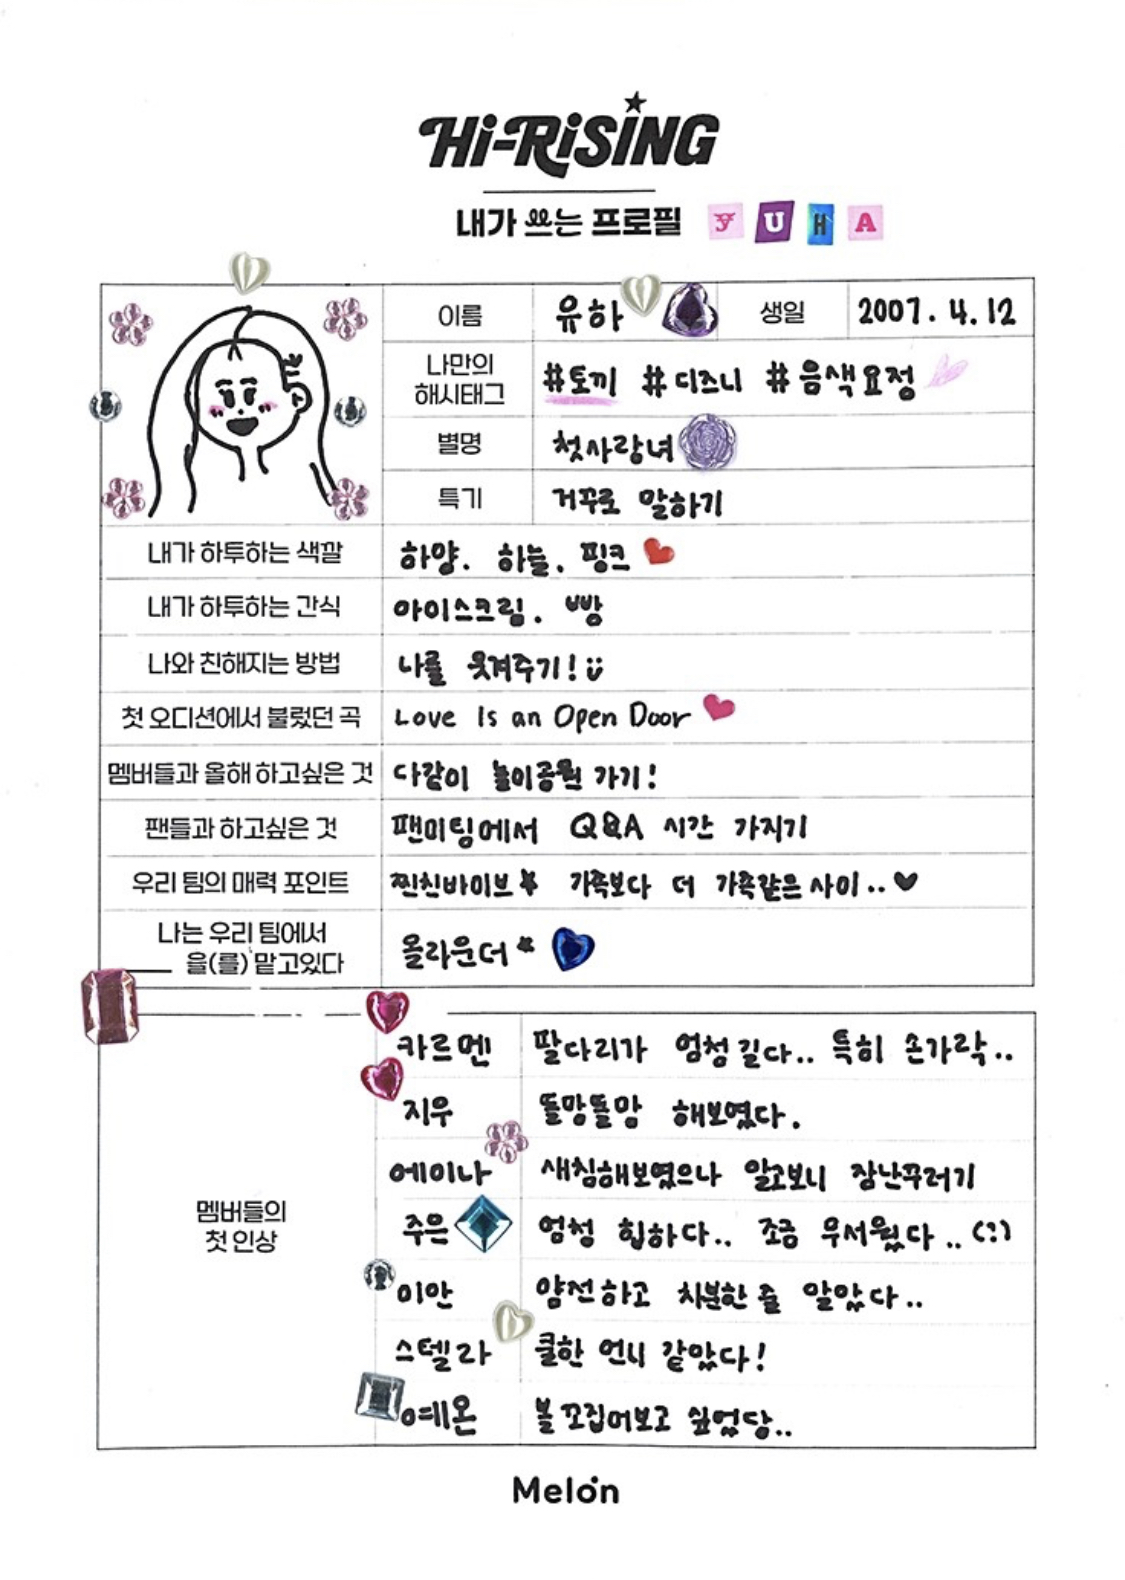 Hi-RiSING
내가 쓰는 프로필 YUHA
이름 유하 생일 2007. 4. 12
나만의
해시태그 #토끼 #디즈니 #음색요정
별명 첫사랑녀
특기 거꾸로 말하기
내가 하투하는 색깔 하양. 하늘. 핑크
내가 하투하는 간식 아이스크림. 빵
나와 친해지는 방법 나를 웃겨주기!
첫 오디션에서 불렀던 곡 Love Is an Open Door
멤버들과 올해 하고싶은 것 다같이 놀이공원 가기!
팬들과 하고싶은 것 팬미팅에서 Q&A 시간 가지기
우리 팀의 매력 포인트 찐친바이브 가족보다 더 가족같은 사이.. ♥
나는 우리 팀에서
___ 을(를) 맡고있다 올라운더
멤버들의
첫 인상
카르멘 팔다리가 엄청 길다.. 특히 손가락..
지우 똘망똘망 해보였다.
에이나 새침해보였으나 알고보니 장난꾸러기
주은 엄청 힙하다.. 조금 무서웠다.. (:)
이안 얌전하고 차분한 줄 알았다..
스텔라 쿨한 언니 같았다!
예온 볼 꼬집어보고 싶었당..
Melon